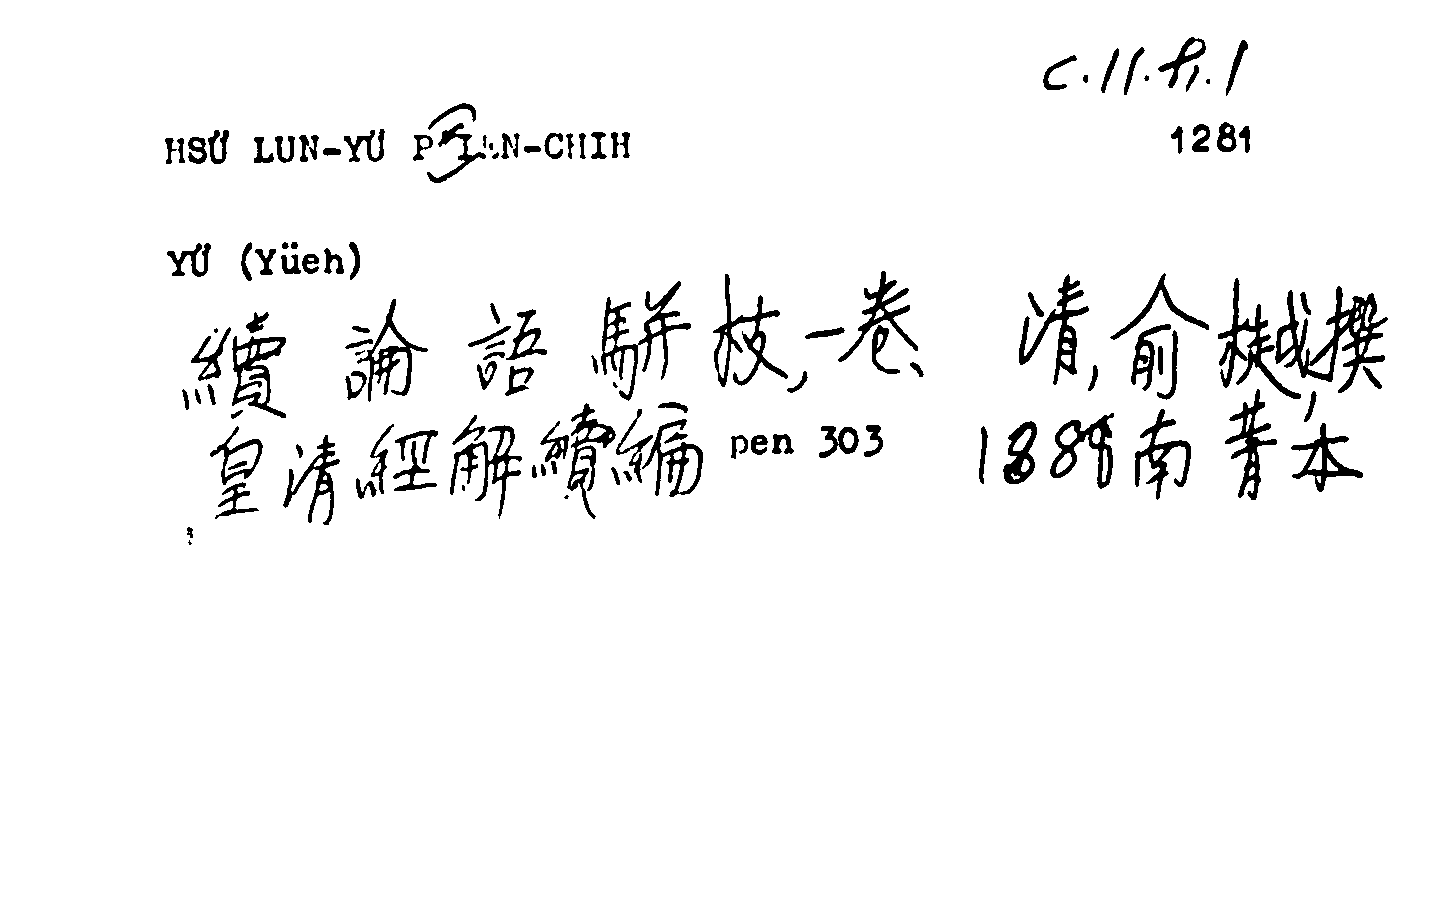 C.11.
1281
HSÜ LUN-YÜ P'IEN-CHIH
YÜ (Yüeh)
續論語駢枝,一卷、 清,俞樾,撰
皇清經解續編 pen 303 1888南菁本